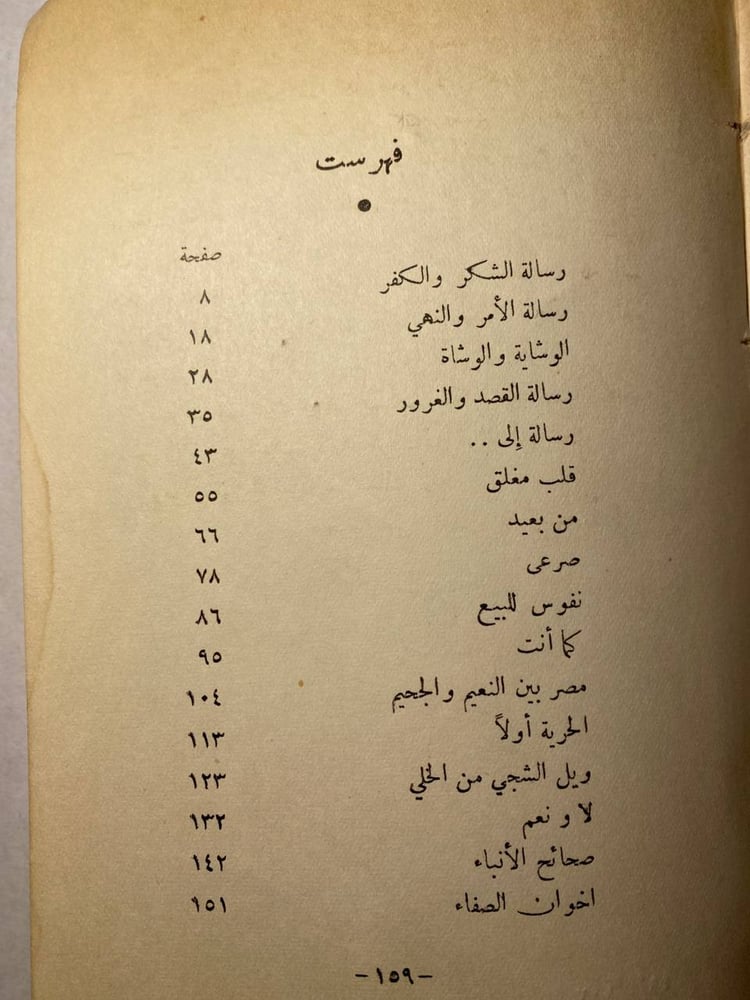 فهرست
صفحة
رسالة الشكر والكفر ٨
رسالة الأمر والنهي ١٨
الوشاية والوشاة ٢٨
رسالة القصد والغرور ٣٥
رسالة إلى .. ٤٣
قلب مغلق ٥٥
من بعيد ٦٦
صرعى ٧٨
نفوس للبيع ٨٦
كما أنت ٩٥
مصر بين النعيم والجحيم ١٠٤
الحرية أولاً ١١٣
ويل الشجي من الخلي ١٢٣
لا و نعم ١٣٢
صحائح الأنباء ١٤٢
اخوان الصفاء ١٥١
– ١٥٩ –